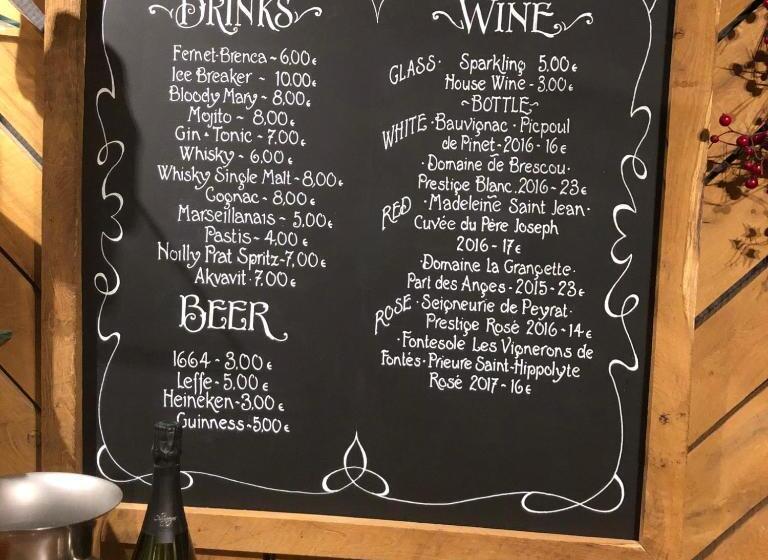 DRINKS
Fernet-Brenca ~ 6,00€
Ice Breaker ~ 10.00€
Bloody Mary ~ 8,00€
Mojito ~ 8,00€
Gin • Tonic ~ 7,00€
Whisky ~ 6,00€
Whisky Single Malt ~ 8,00€
Cognac ~ 8,00€
Marseillanais ~ 5,00€
Pastis ~ 4,00€
Noilly Prat Spritz ~ 7,00€
Akvavit · 7,00€
BEER
1664 ~ 3,00€
Leffe ~ 5,00€
Heineken ~ 3,00€
Guinness ~ 5,00€
WINE
GLASS · Sparkling 5,00€
House Wine ~ 3,00€
~BOTTLE~
WHITE · Bauvignac · Picpoul
de Pinet ~ 2016 ~ 16€
· Domaine de Brescou ·
Prestige Blanc. 2016 ~ 23€
RED · Madeleine Saint Jean ·
Cuvée du Père Joseph
2016 ~ 17€
· Domaine La Grangette ·
Part des Anges · 2015 ~ 23€
ROSÉ · Seigneurie de Peyrat ·
Prestige Rosé 2016 ~ 14€
· Fontesole Les Vignerons de
Fontés · Prieure Saint-Hippolyte
Rosé 2017 ~ 16€